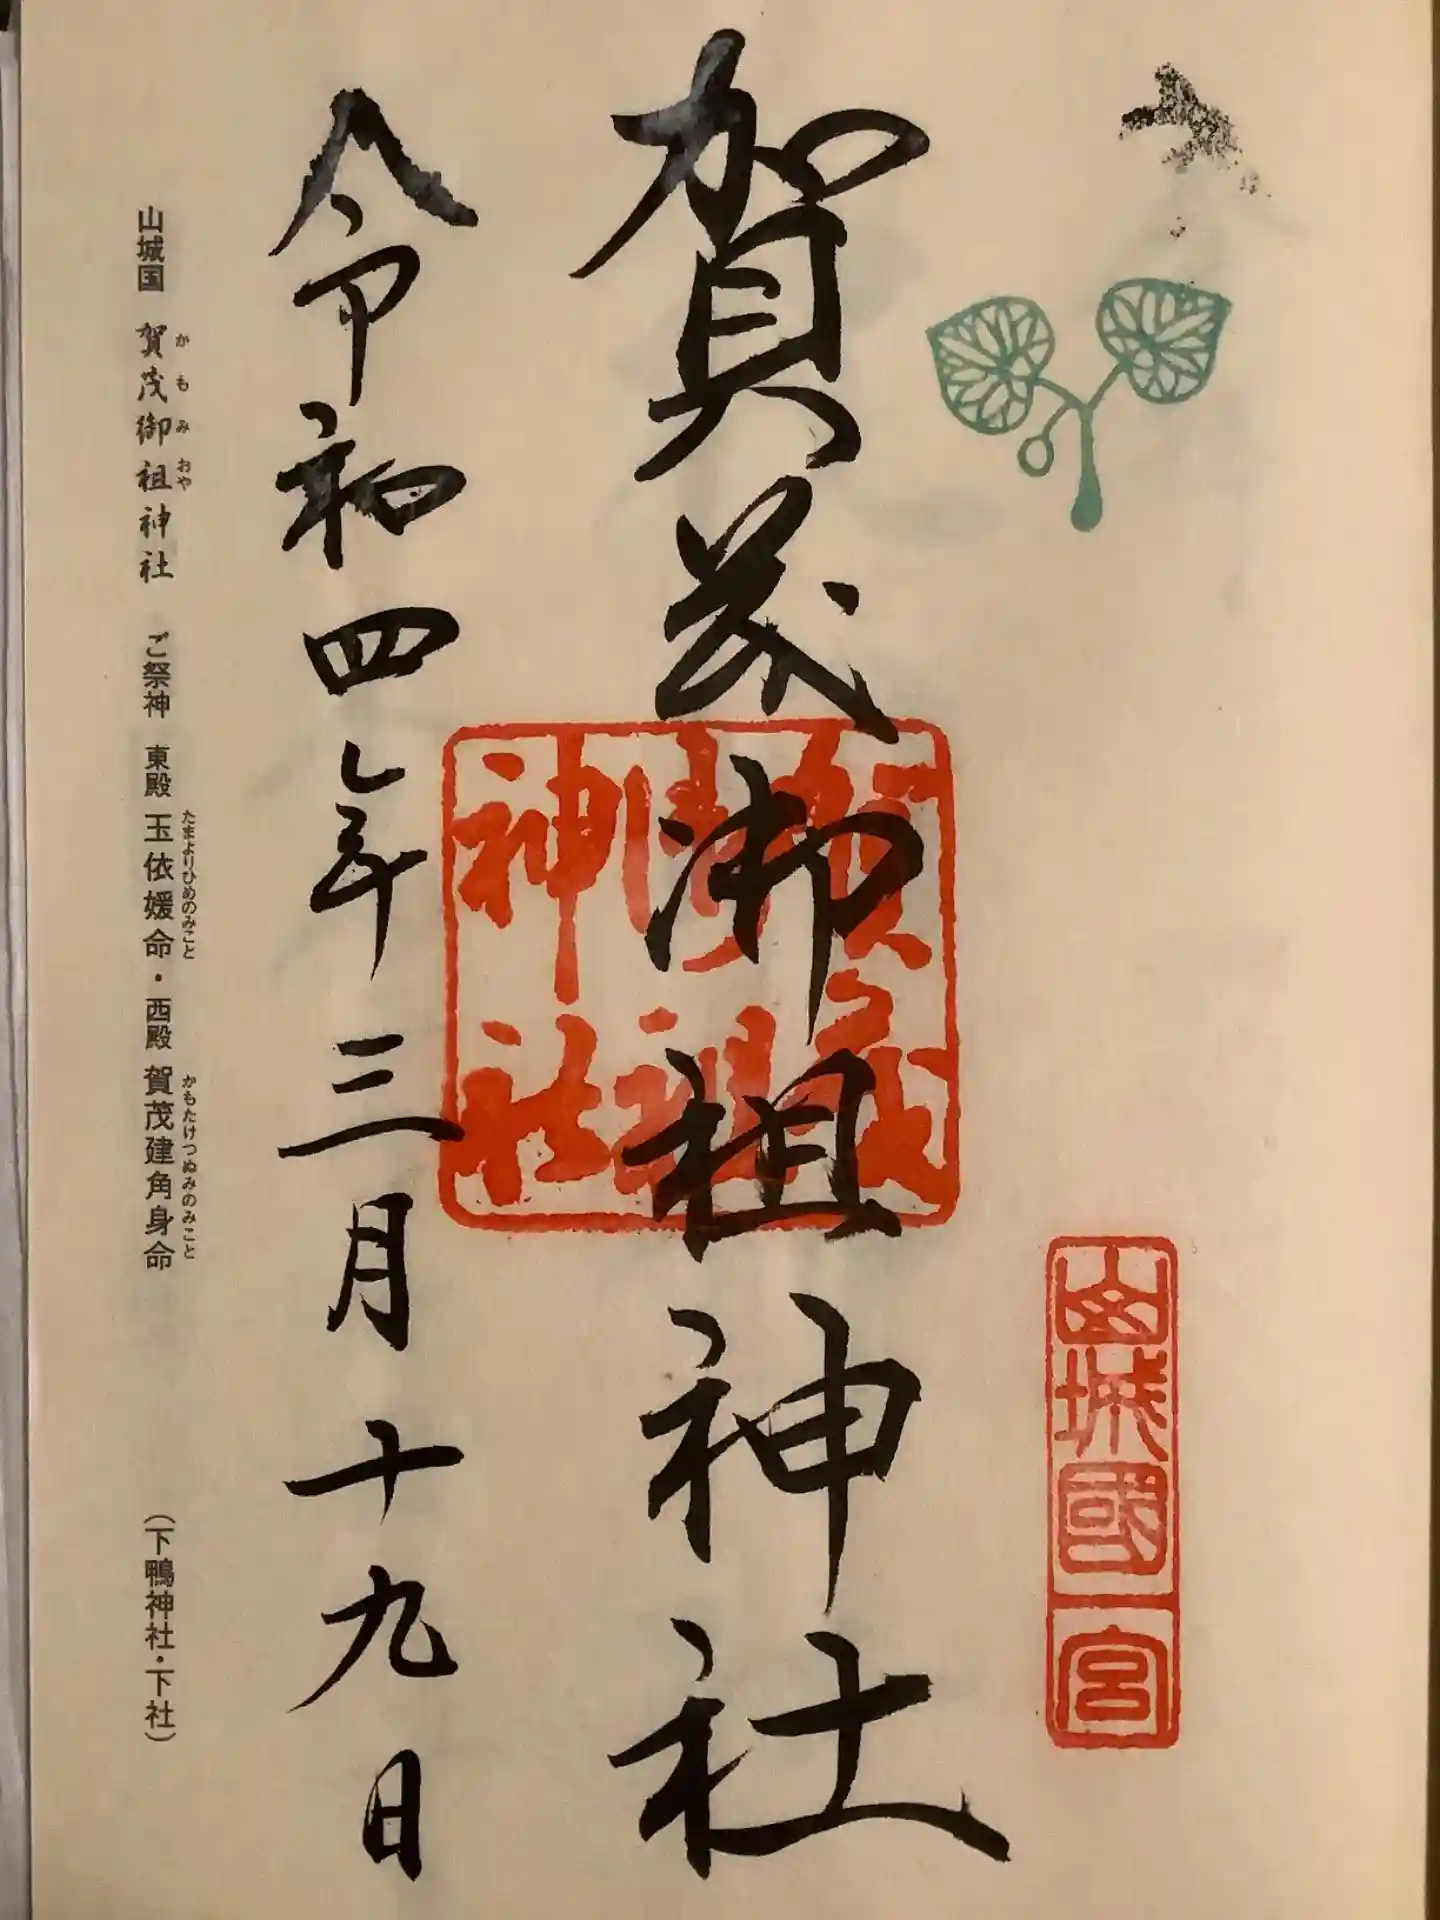 山城國一宮
賀茂御祖神社
賀茂御祖神社
令和四年三月十九日
山城国 賀茂御祖神社 ご祭神 東殿 玉依媛命・西殿 賀茂建角身命 (下鴨神社・下社)
かもみおや
たまよりひめのみこと
かもたけつぬみのみこと